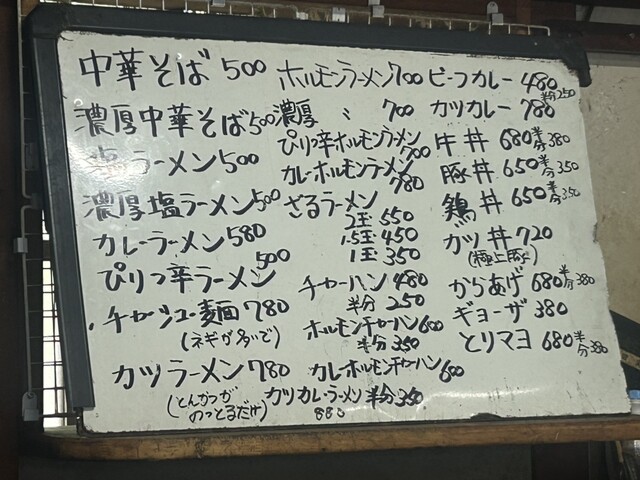 中華そば 500
濃厚中華そば 500
塩ラーメン 500
濃厚塩ラーメン 500
カレーラーメン 580
ぴりっ辛ラーメン 500
チャーシュー麺 780
(ネギが多いで)
カツラーメン 780
(とんかつが
のっとるだけ)
ホルモンラーメン 700
濃厚 〃 700
ぴりっ辛ホルモンラーメン 700
カレーホルモンラーメン 780
ざるラーメン
2玉 550
1.5玉 450
1玉 350
チャーハン 480
半分 250
ホルモンチャーハン 600
半分 350
カレーホルモンチャーハン 600
半分 350
カツカレーラーメン
880
ビーフカレー 480
半分 250
カツカレー 780
牛丼 680 半分 380
豚丼 650 半分 350
鶏丼 650 半分 350
カツ丼 720
(極上豚だ)
からあげ 680 半分 380
ギョーザ 380
とりマヨ 680 半分 380